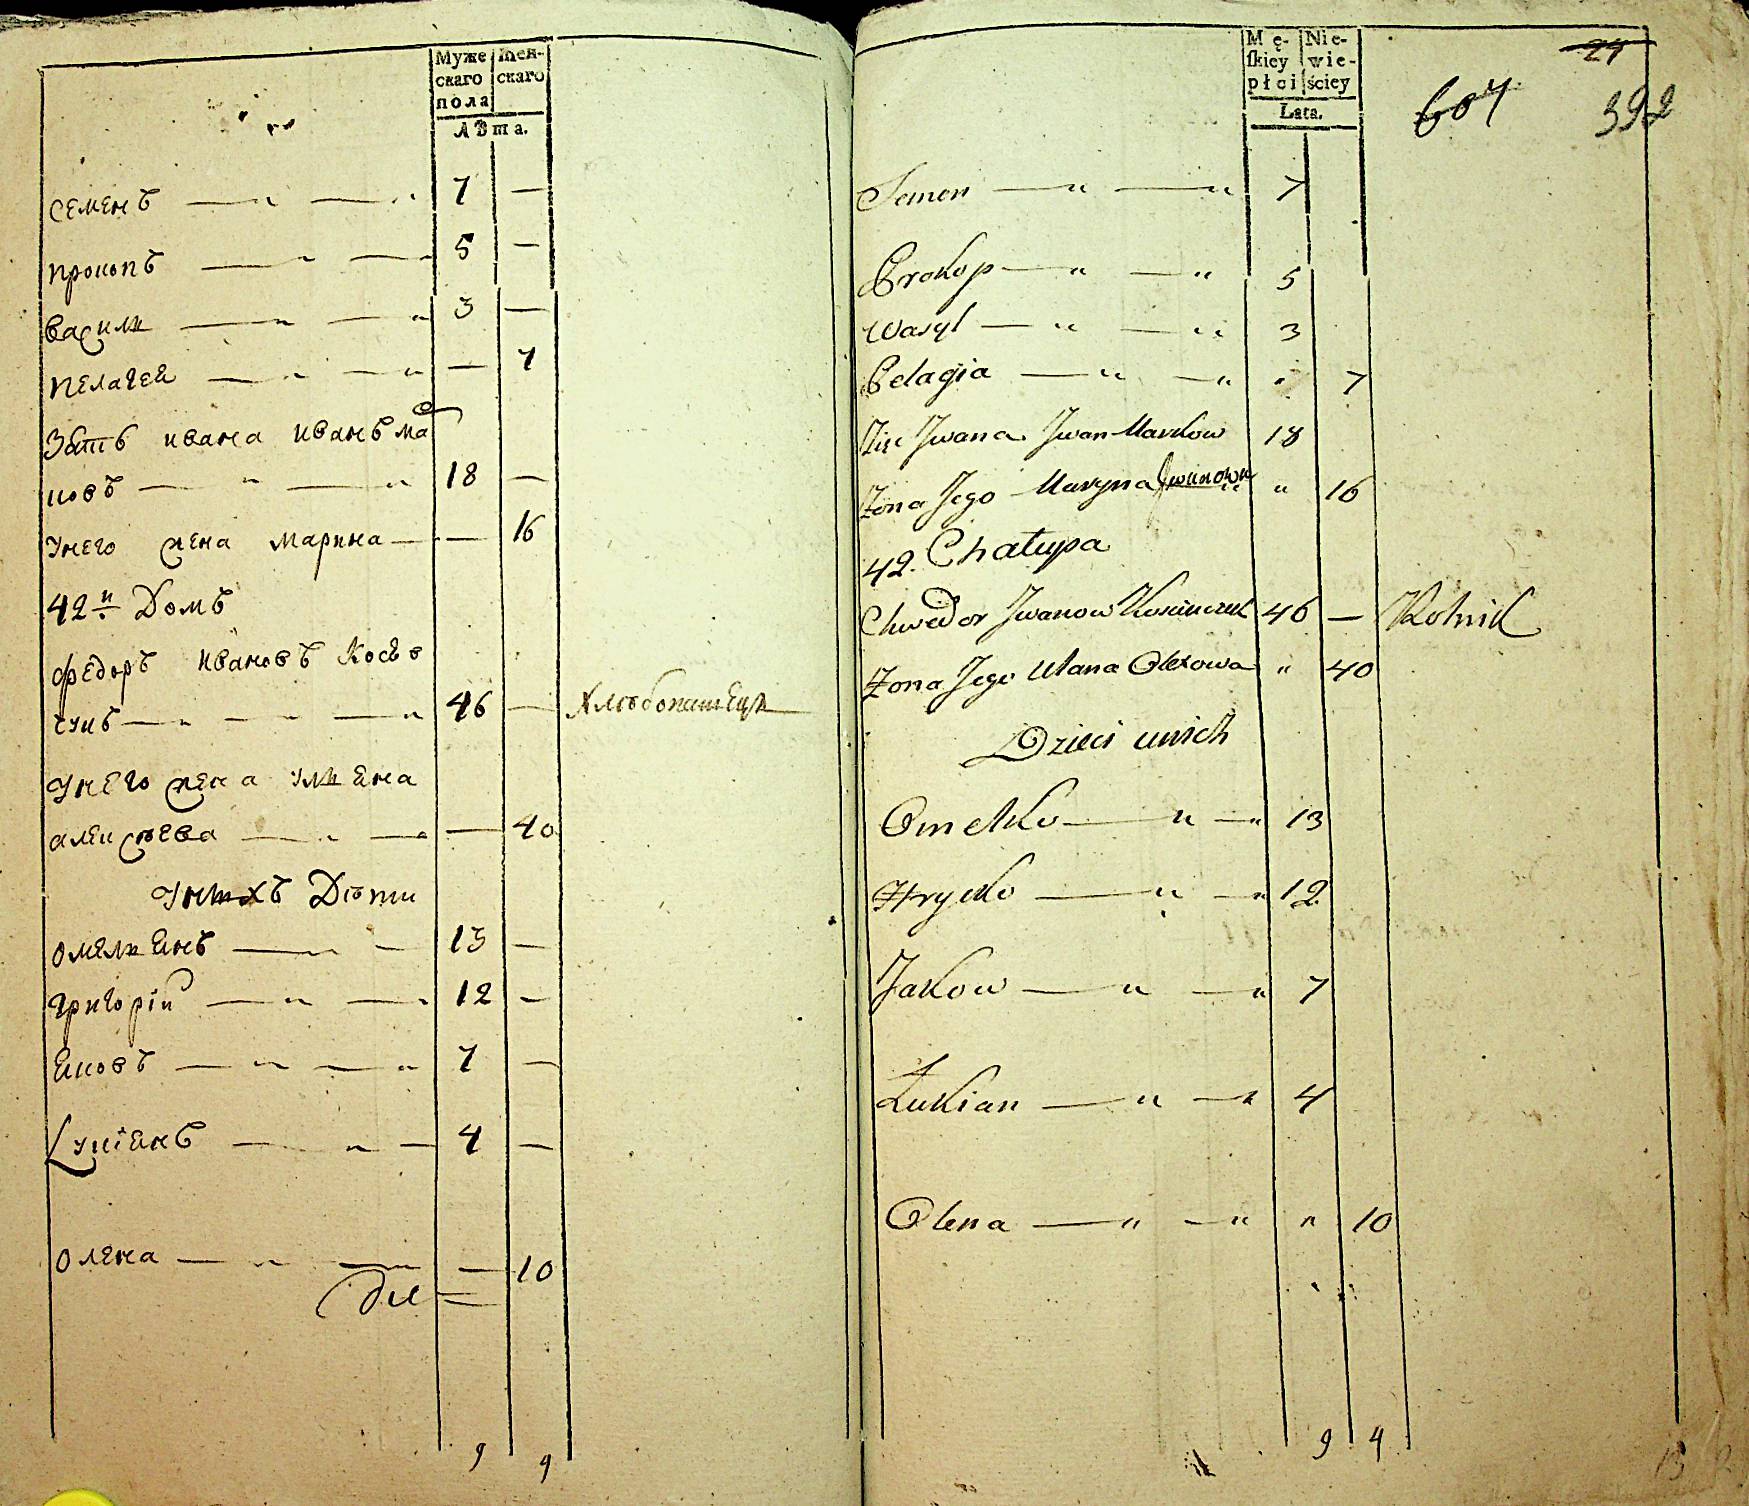 Муже
скаго
пола
Жен-
скаго
Лѣта.
Семенъ — „ — „ 7 —
Прокопъ — „ — „ 5 —
Василй — „ — „ 3 —
Пелагея — „ — „ — 7
Зять ивана иванъ ма
ковъ — „ — „ 18 —
Унего жена марина — — 16
42й Домъ
Федоръ ивановъ Косѣв
чукъ — „ — — „ 46 — Хлѣбопашецъ
Унего жена ульяна
алексѣева — „ — „ — 40
Унихъ Дѣти
Омельянъ — „ — 13 —
Григорій — „ — „ 12 —
Яковъ — „ — „ 7 —
Лукіянъ — „ — 4 —
Олена — „ — — 10
9 4
Mę-
ſkiey
płci
Nie-
wie-
ściey
Lata.
24
604
392
Semen — „ — „ 7
Prokop — „ — „ 5
Wasyl — „ — „ 3
Pelagia — „ — „ „ 7
Zięć Jwana Jwan Markow 18
Żona Jego Maryna Jwanowa „ 16
42. Chałupa
Chwedor Jwanow Kosiewczuk 46 — Rolnik
Żona Jego Ulana Olexowa „ 40
Dzieci unich
Omelko — „ — „ 13
Hryćko — „ — „ 12
Jakow — „ — „ 7
Łukian — „ — „ 4
Olena — „ — „ „ 10
9 4
13